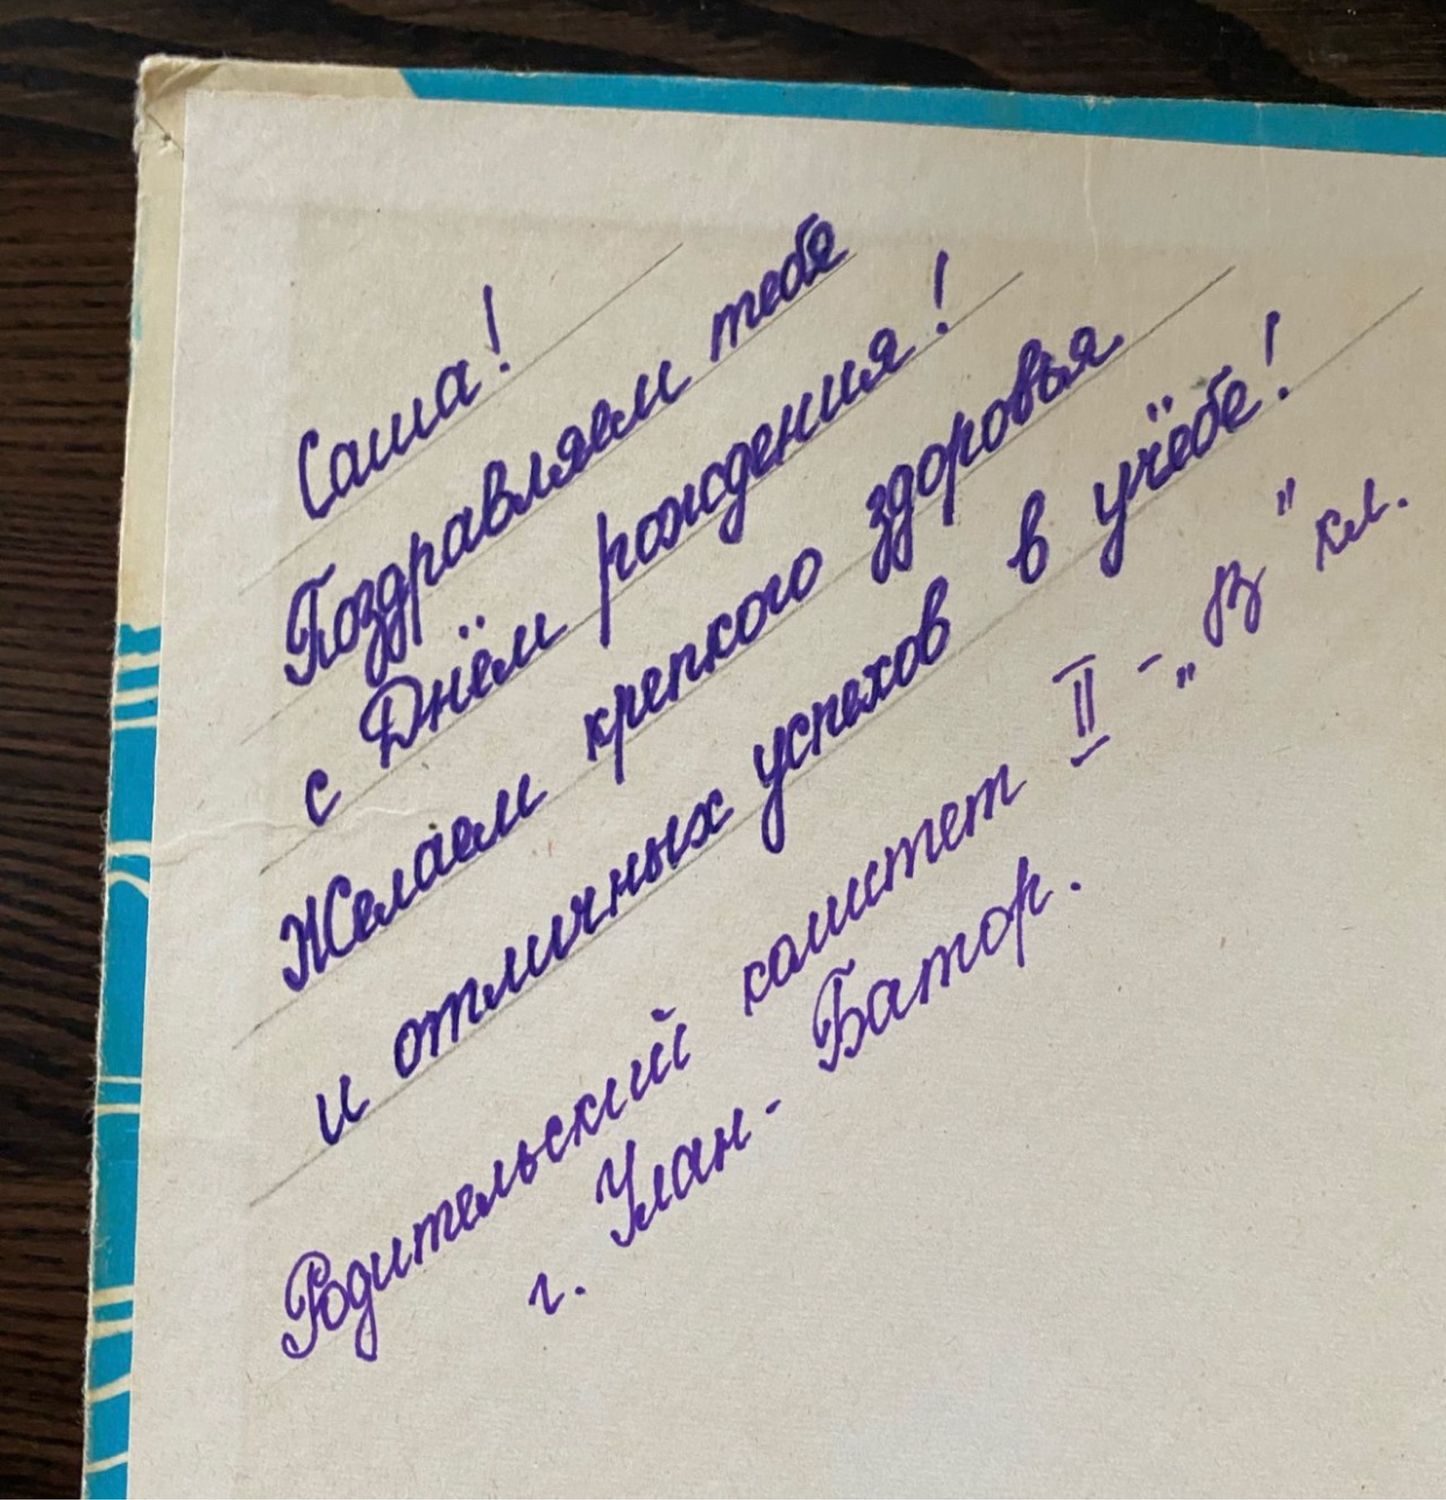 Саша!
Поздравляем тебя
с Днём рождения!
Желаем крепкого здоровья
и отличных успехов в учёбе!
Родительский комитет II - „В" кл.
г. Улан-Батор.